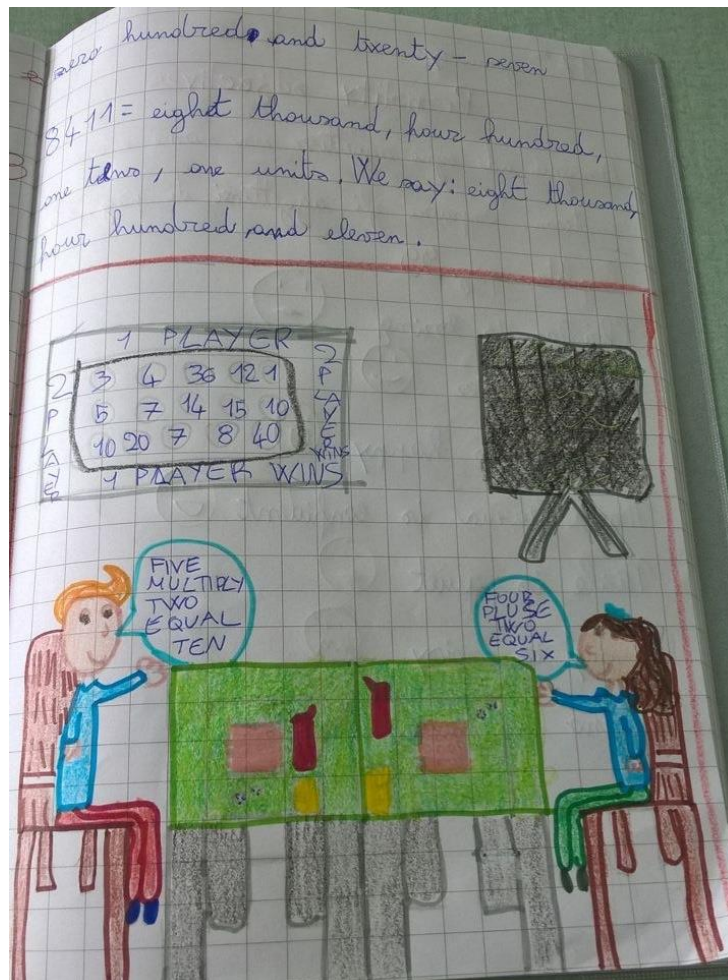 zero hundred and twenty - seven
8411 = eight thousand, hour hundred,
one tens, one units. We say: eight thousand,
hour hundred, and eleven.
1 PLAYER
2 PLAYER
3 4 36 12 1
5 7 14 15 10
10 20 7 8 40
2 PLAYER WINS
1 PLAYER WINS
FIVE
MULTIPLY
TWO
EQUAL
TEN
FOUR
PLUSE
TWO
EQUAL
SIX